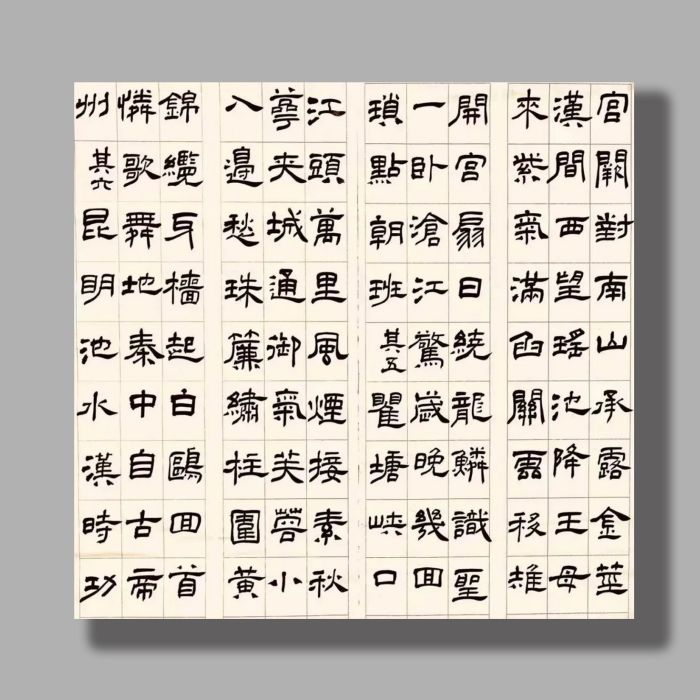 宮闕對南山承露金莖
漢間西望瑤池降王母
來紫氣滿函關雲移雉
開宮扇日繞龍鱗識聖
一臥滄江驚歲晚幾回
瑣點朝班其五瞿塘峽口
江頭萬里風煙接素秋
萼夾城通御氣芙蓉小
入邊愁珠簾繡柱圍黃
錦纜牙檣起白鷗回首
憐歌舞地秦中自古帝
州其六昆明池水漢時功